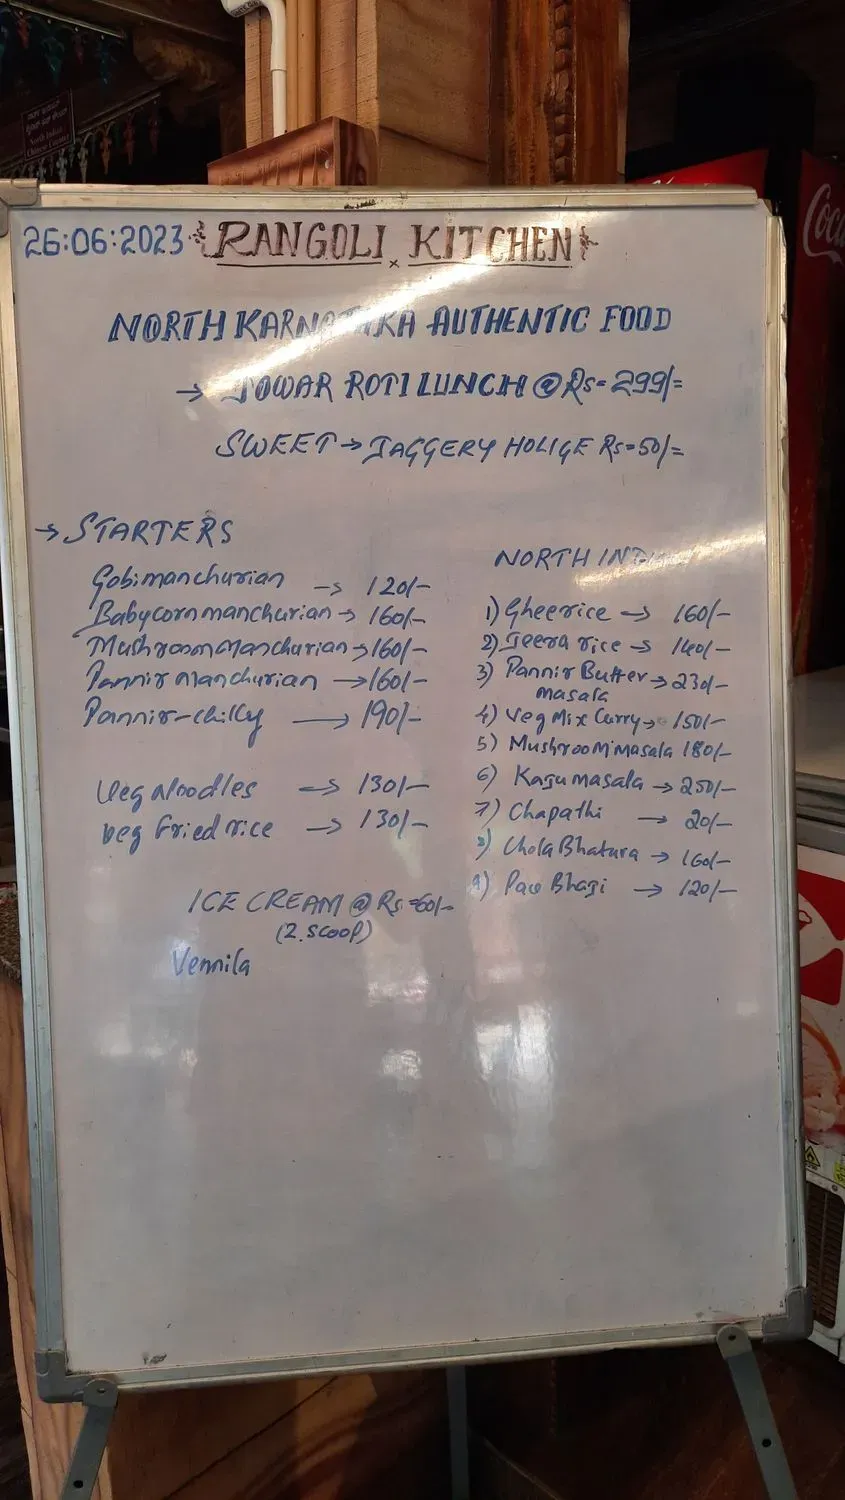 26:06:2023 RANGOLI KITCHEN
NORTH KARNATAKA AUTHENTIC FOOD
→ JOWAR ROTI LUNCH @ Rs= 299/=
SWEET → JAGGERY HOLIGE Rs=50/=
→ STARTERS
Gobimanchurian → 120/-
Babycornmanchurian → 160/-
Mushroommanchurian → 160/-
Pannir manchurian → 160/-
Pannir-chilly → 190/-
Veg Noodles → 130/-
Veg Fried rice → 130/-
ICE CREAM @ Rs=60/-
(2.SCOOP)
Vennila
NORTH INDIAN
1) Ghee rice → 160/-
2) Jeera rice → 140/-
3) Pannir Butter → 230/-
masala
4) Veg Mix Curry → 150/-
5) Mushroom masala 180/-
6) Kaju masala → 250/-
7) Chapathi → 20/-
8) Chola Bhatura → 160/-
9) Pav Bhagi → 120/-
North Indian
Chinese Counter
Coca